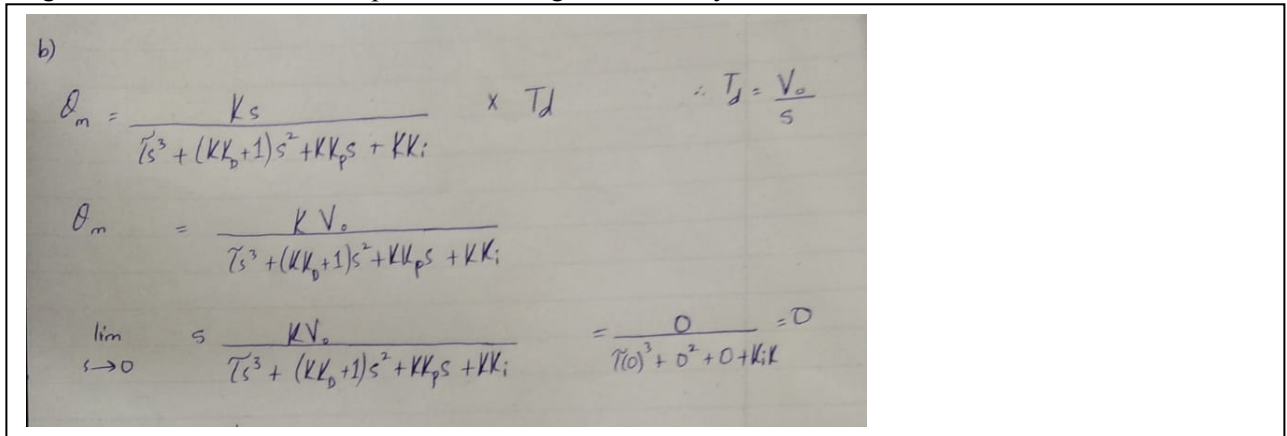 b)
θm = Ks / (τs³ + (KKD+1)s² + KKps + KKi) × Td ∴ Td = Vo / s
θm = KVo / (τs³ + (KKD+1)s² + KKps + KKi)
lim s→0 s KVo / (τs³ + (KKD+1)s² + KKps + KKi) = 0 / (τ(0)³ + 0² + 0 + KiK) = 0